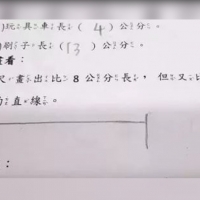 玩具車長(4)公分。
刷子長(13)公分。
畫看：
尺畫出比8公分長，但又比
的直線。
：